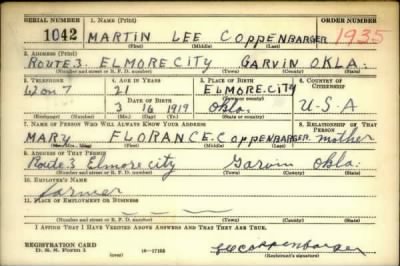 SERIAL NUMBER 1. NAME (Print) ORDER NUMBER
1042 MARTIN LEE COPPENBARGER 1935
(First) (Middle) (Last)
2. ADDRESS (Print)
ROUTE 3. ELMORE CITY GARVIN OKLA.
(Number and street or R. F. D. number) (Town) (County) (State)
3. TELEPHONE 4. AGE IN YEARS 5. PLACE OF BIRTH 6. COUNTRY OF CITIZENSHIP
21 ELMORE.CITY
DATE OF BIRTH (Town or county)
3 16 1919 Okla. U-S-A
(Mo.) (Day) (Yr.) (State or country)
7. NAME OF PERSON WHO WILL ALWAYS KNOW YOUR ADDRESS 8. RELATIONSHIP OF THAT PERSON
MARY FLORANCE. Coppenbarger. mother
(Mr., Mrs., Miss) (First) (Middle) (Last)
9. ADDRESS OF THAT PERSON
Route 3 Elmore city Garvin Okla.
(Number and street or R. F. D. number) (Town) (County) (State)
10. EMPLOYER'S NAME
Farmer
11. PLACE OF EMPLOYMENT OR BUSINESS
(Number and street or R. F. D. number) (Town) (County) (State)
I AFFIRM THAT I HAVE VERIFIED ABOVE ANSWERS AND THAT THEY ARE TRUE.
REGISTRATION CARD
D. S. S. Form 1 Lee Coppenbarger
(Registrant's signature)